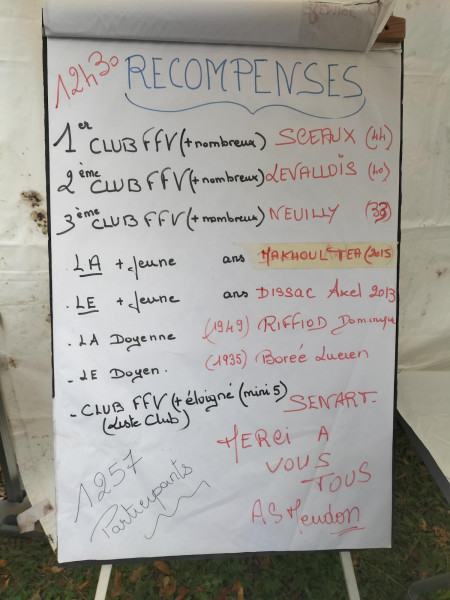 12h30 RECOMPENSES
1er CLUB FFV (+ nombreux) SCEAUX (44)
2ème CLUB FFV (+ nombreux) LEVALLOIS (40)
3ème CLUB FFV (+ nombreux) NEUILLY (33)
. LA + Jeune ans MAKHOUL TEA (2015
. LE + Jeune ans DISSAC Axel 2013
- LA Doyenne (1949) RIFFIOD Dominique
- LE Doyen. (1935) Boreé Lucien
- CLUB FFV (+ éloigné (mini 5) SENART-
(Liste Club)
MERCI A
VOUS
TOUS
1257
Participants
AS Meudon